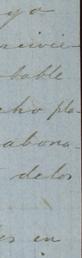 yo
recivie-
bable
cho pla-
abona-
delos
es en